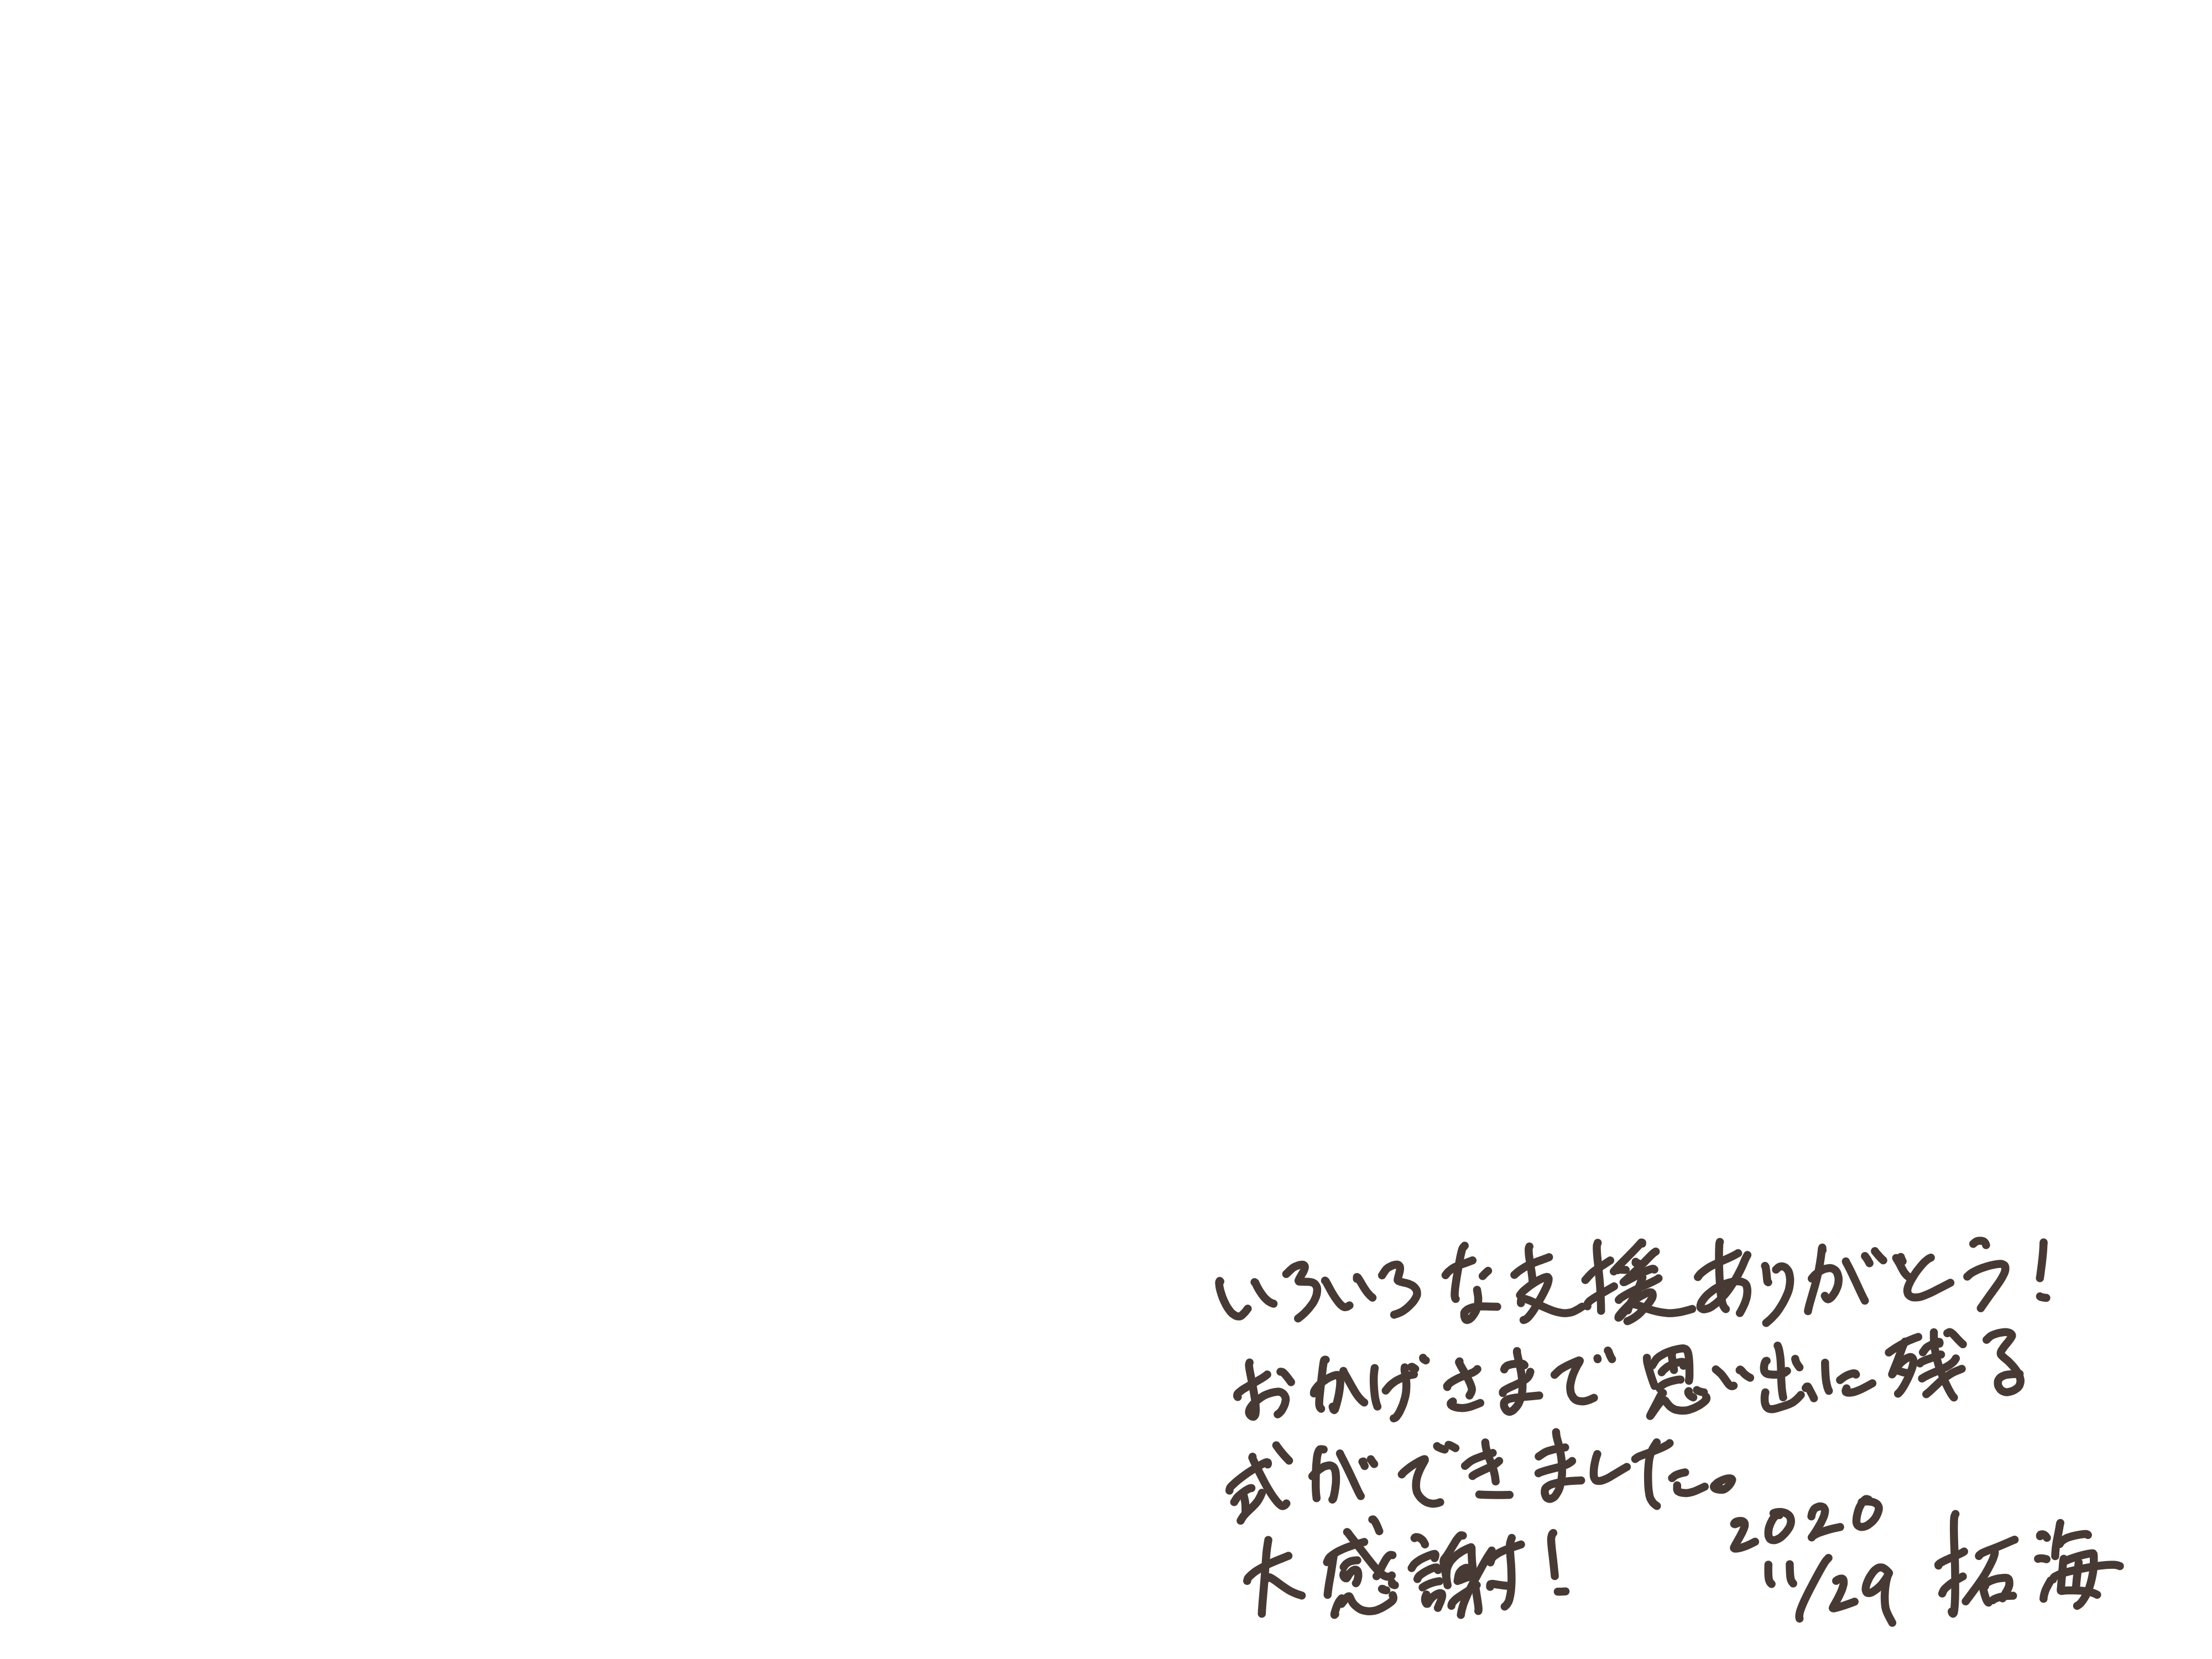 いろいろな支援ありがとう!
おかげさまで思い出に残る
式ができました。
大感謝!
2020
11/29 拓海